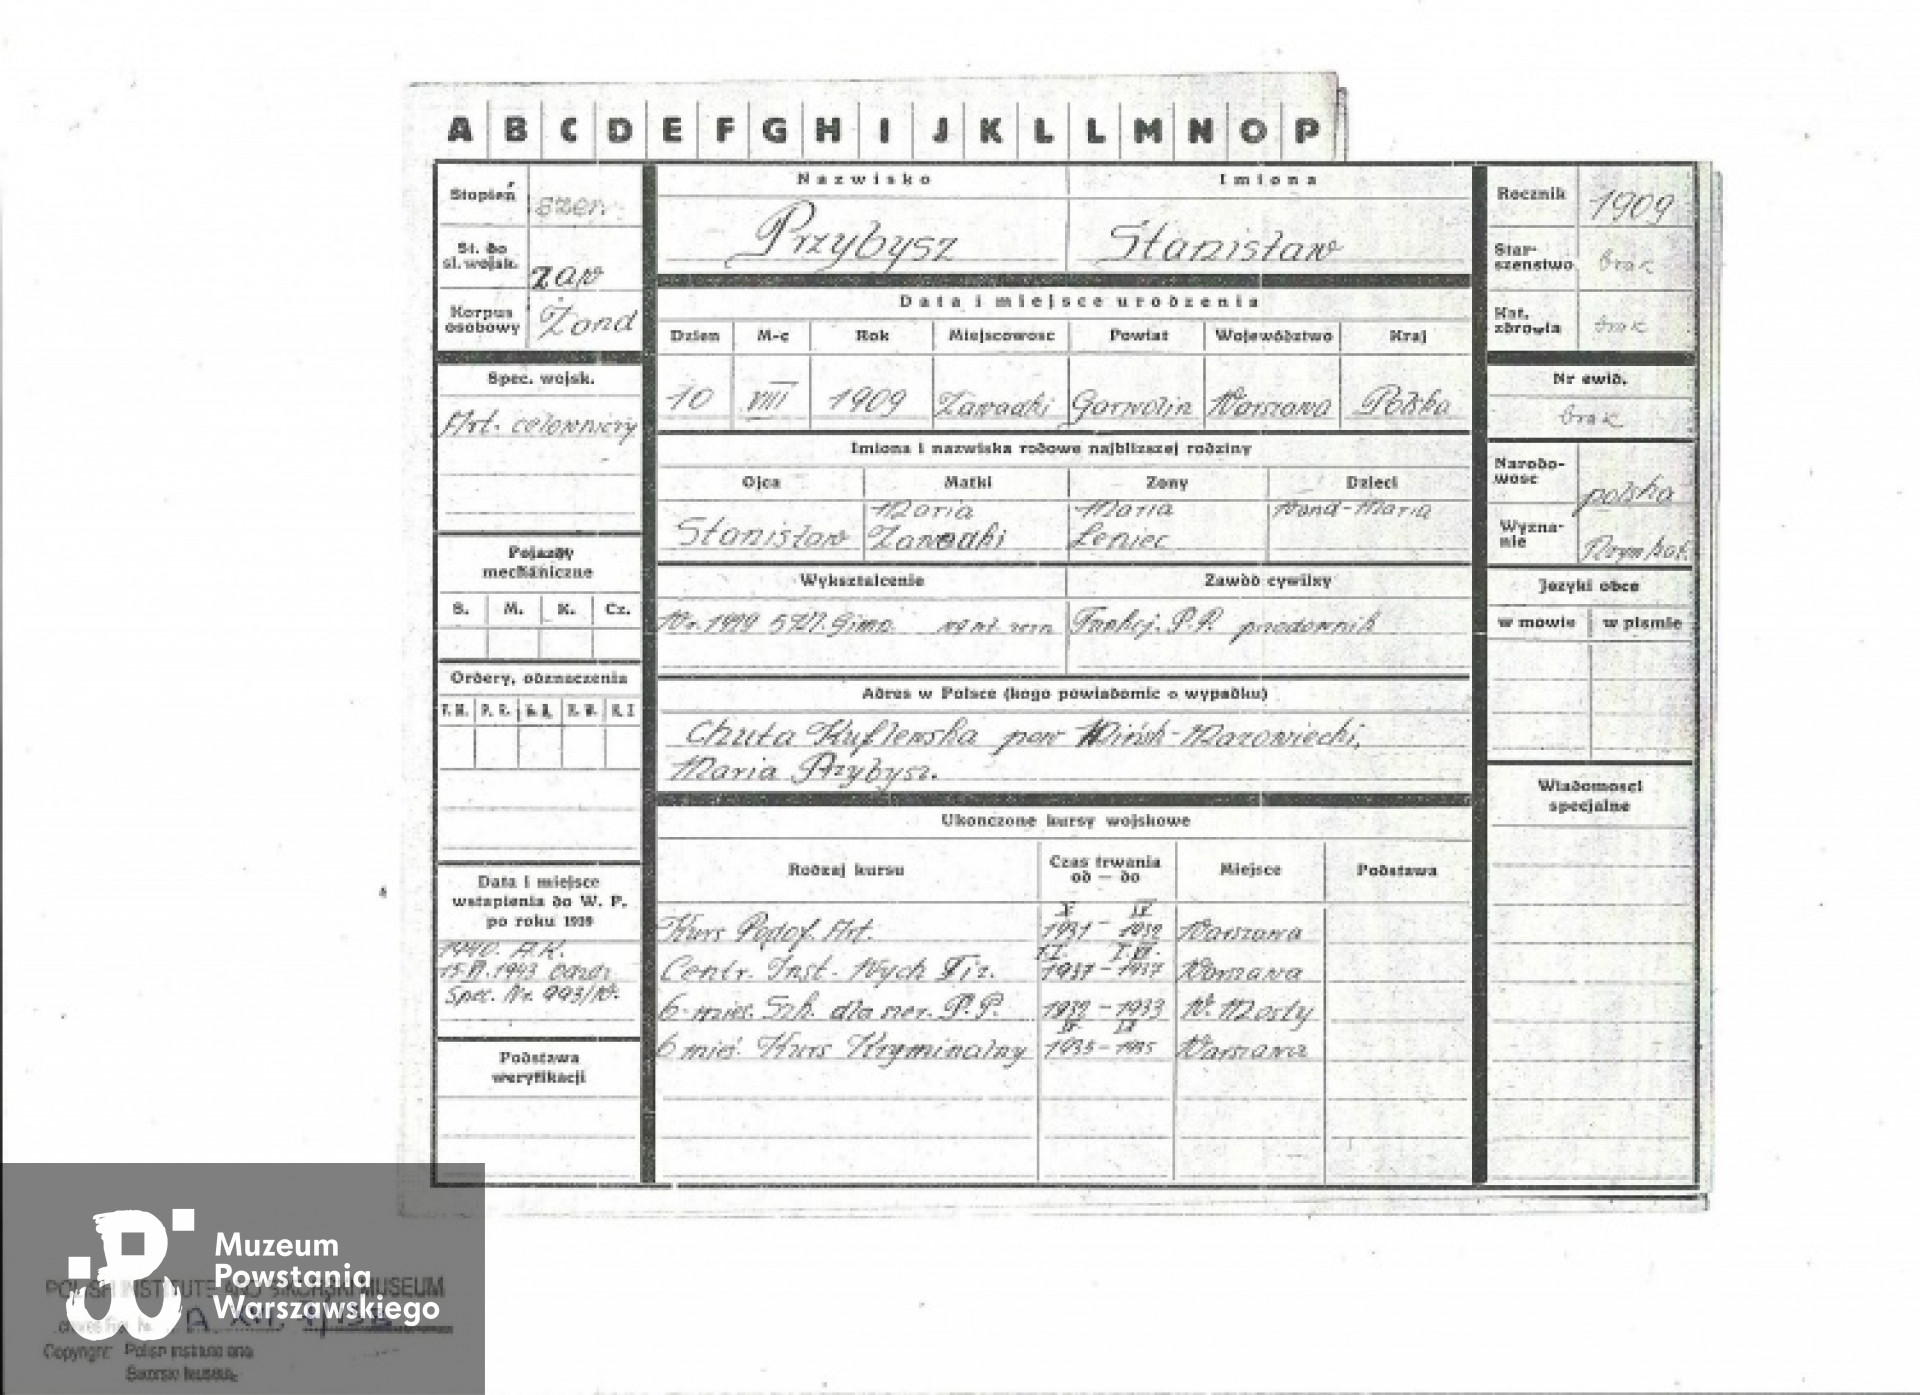 A B C D E F G H I J K L Ł M N O P
Stopień szer.
St. do sł. wojsk. zaw
Korpus osobowy Żand
Spec. wojsk.
Art. celowniczy
Pojazdy mechaniczne
S. M. K. Cz.
Ordery, odznaczenia
Data i miejsce
wstąpienia do W. P.
po roku 1939
1940. A.K.
15.VI.1943
Spec. Nr. 993/W.
Podstawa
weryfikacji
Nazwisko Imiona
Przybysz Stanisław
Data i miejsce urodzenia
Dzien M-c Rok Miejscowosc Powiat Województwo Kraj
10 VIII 1909 Zawadki Garwolin Warszawa Polska
Imiona i nazwiska rodowe najblizszej rodziny
Ojca Matki Zony Dzieci
Maria Maria Wand-Maria
Stanisław Zawadki Leniec
Wykształcenie Zawód cywilny
Gimn. Funkcj. P.P. przodownik
Adres w Polsce (kogo powiadomic o wypadku)
Chuta Kuflewska pow Mińsk-Mazowiecki,
Maria Przybysz.
Ukonczone kursy wojskowe
Rodzaj kursu Czas trwania od — do Miejsce Podstawa
X IV
Kurs Podof. Art. 1931 - 1932 Warszawa
Centr. Inst. Wych Fiz. 1937 - 1937 Warszawa
6-mies. Szk. dla szer. P.P. 1932 - 1933 W. Mosty
6 mieś. Kurs Kryminalny 1935 - 1935 Warszawa
Rocznik 1909
Starszenstwo brak
Kat. zdrowia brak
Nr ewid.
brak
Narodowosc polska
Wyznanie Rzym kat.
Jezyki obce
w mowie w pismie
Wiadomosci
specjalne
Muzeum
Powstania
Warszawskiego
POLISH INSTITUTE AND SIKORSKI MUSEUM
Copyright: Polish Institute and
Sikorski Museum